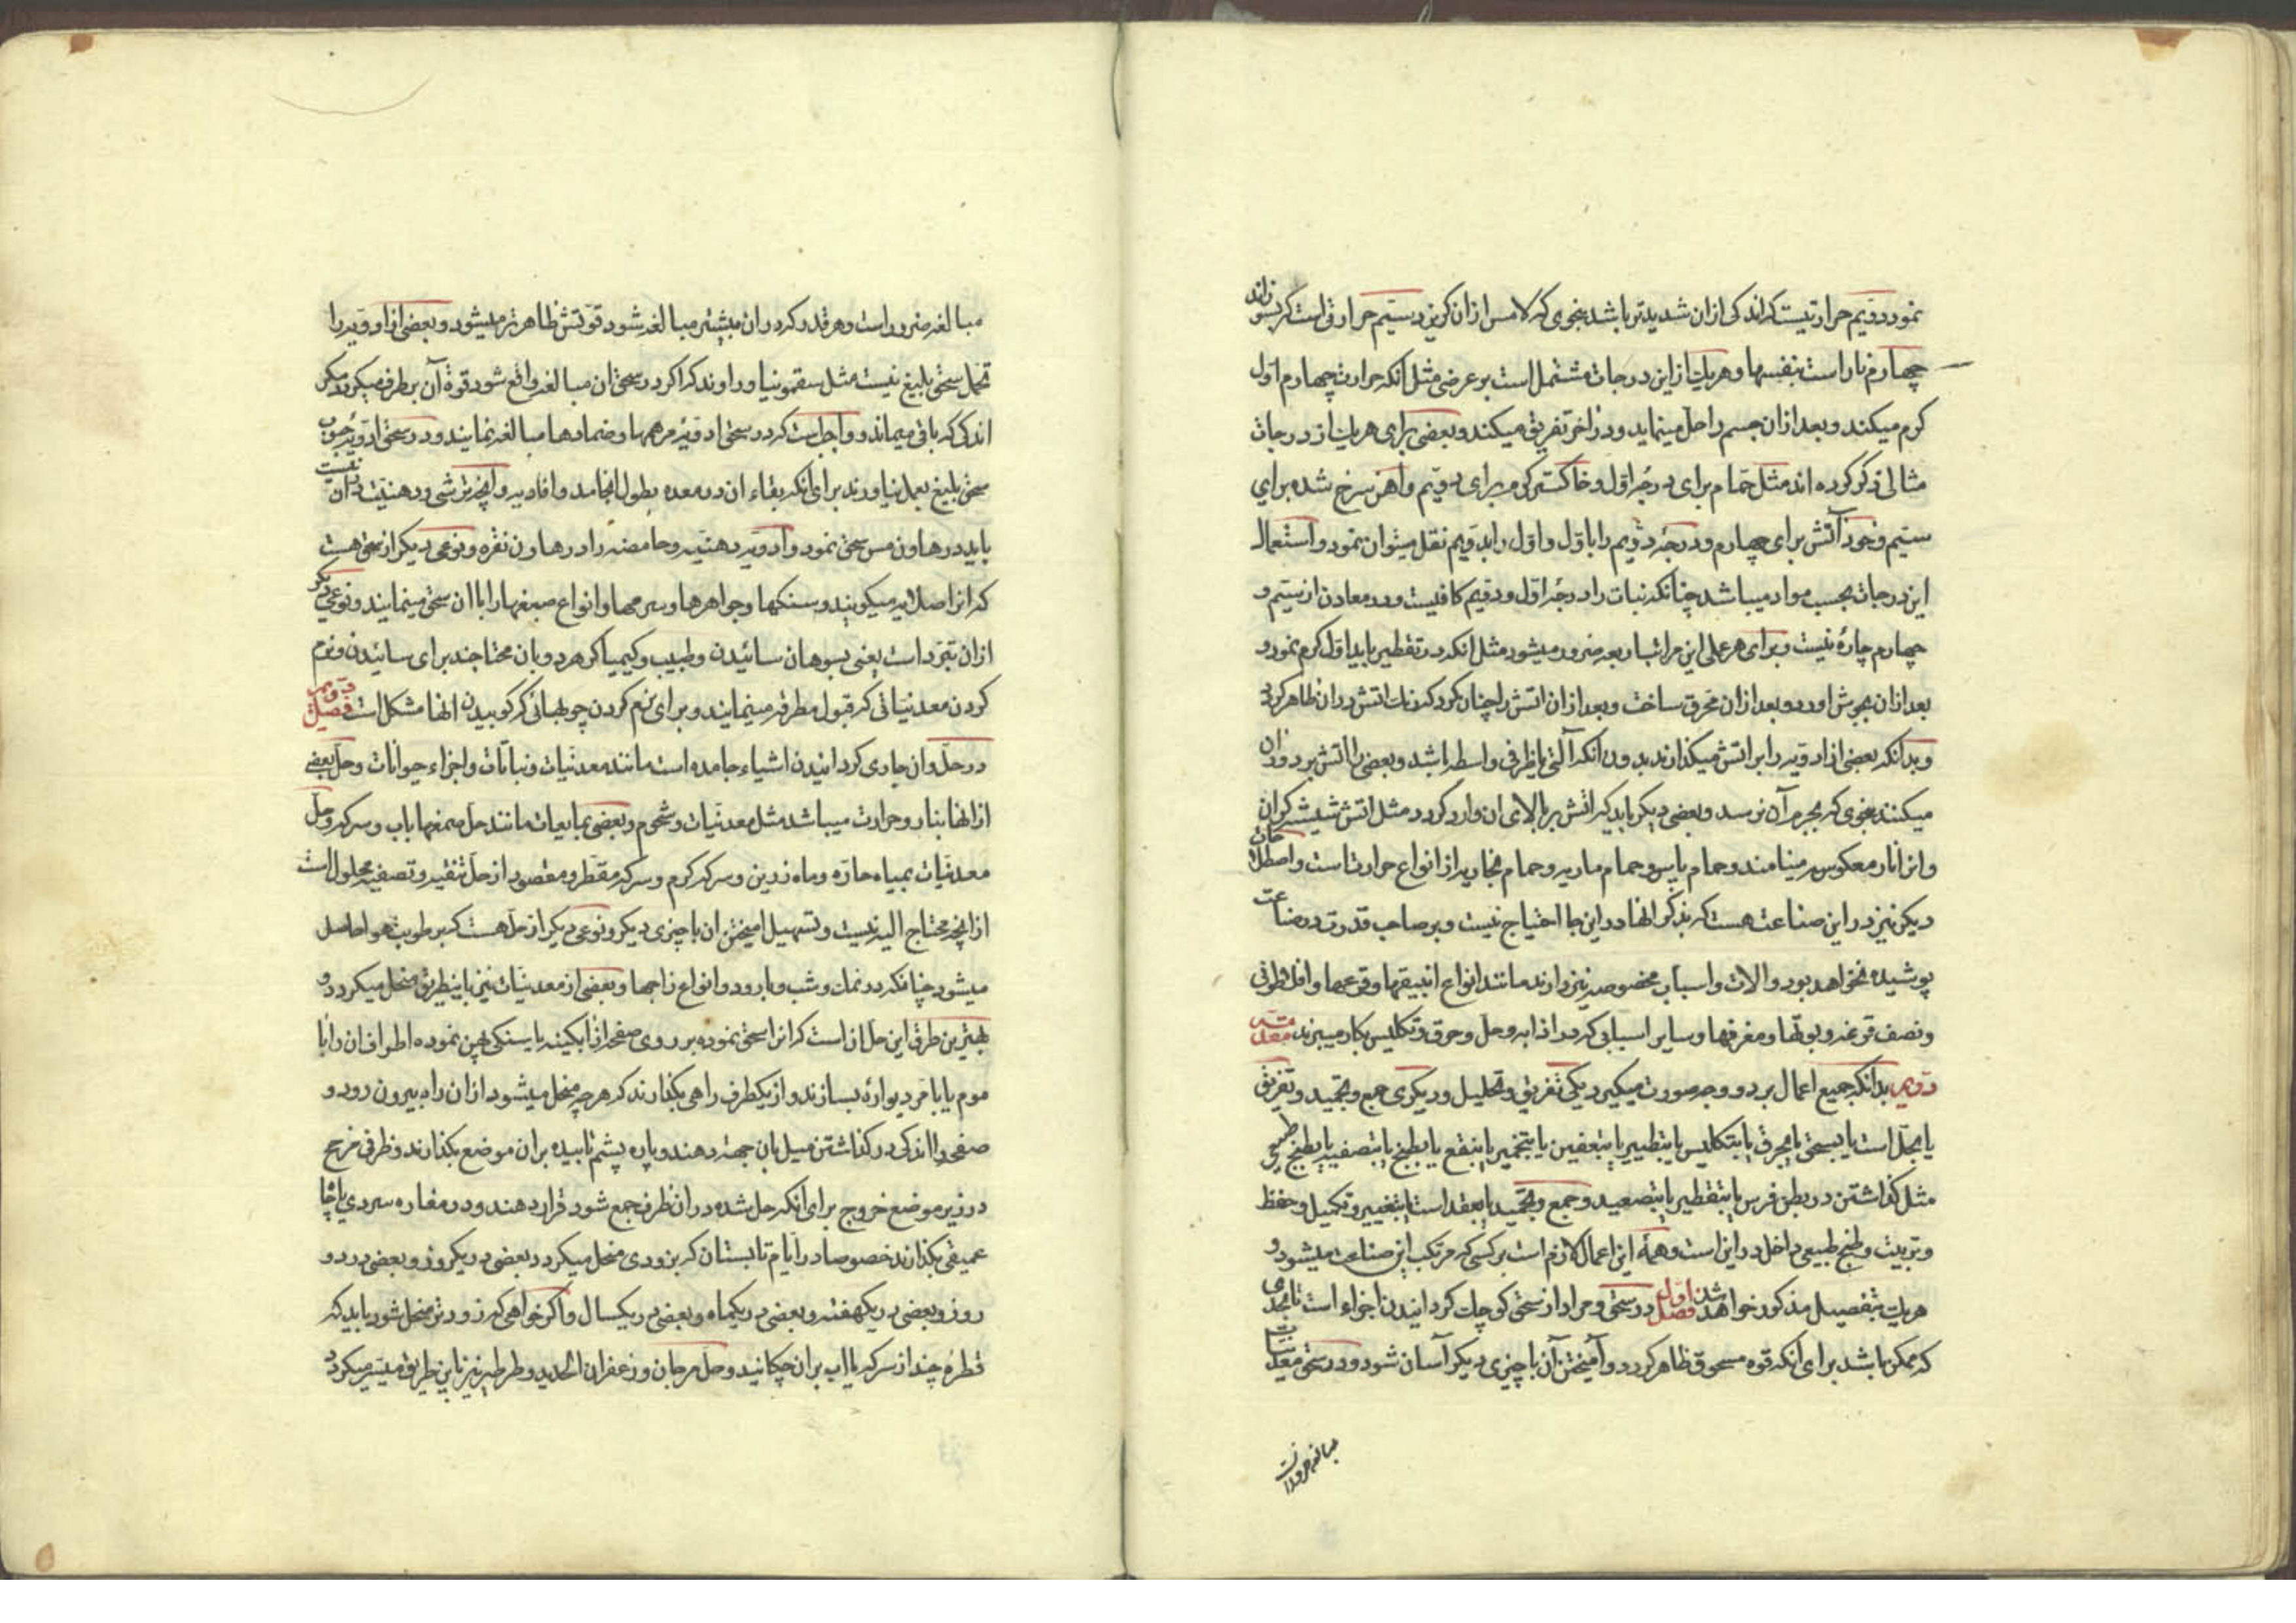 نمود دویم حرارتیست که اندکی ازان شدیدتر باشد بنحوی که لامس ازان گریزد سیم حرارتی است که بسوزاند
چهارم نار است بنفسها و هریک از این درجات مشتمل است بر عرضی مثل انکه حرارت چهارم اول
کرم میکند و بعد ازان جسم را حل مینماید و در اخر تفریق میکند و بعضی برای هریک از درجات
مثالی ذکر کرده اند مثل حمام برای درجۀ اول و خاکستر کرم برای دویم و اهن سرخ شده برای
سیم و خود آتش برای چهارم و درجۀ دویم را باول و اول را بدویم نقل میتوان نمود و استعمال
این درجات بحسب مواد میباشد چنانکه نبات را درجۀ اول و دویم کافیست و در معادن از سیم و
چهارم چارۀ نیست و برای هر عملی این مراتب اربعه ضرور میشود مثل انکه در تقطیر باید اول کرم نمود و
بعد ازان بجوش اورد و بعد ازان محرق ساخت و بعد ازان اتش را چنان کرد که زبانه اتش دران ظاهر کردد
و بدانکه بعضی از ادویه را بر اتش میکذارند بدون انکه آلتی یا ظرفی واسطه باشد و بعضی را اتش بر دور ان
میکنند بنحوی که بجرم آن نرسد و بعضی دیکر باید که اتش بر بالای ان وارد کردد مثل اتش شیشه کران
و انرا نار معکوسه مینامند و حمام یابس و حمام ماریه و حمام بخاریه از انواع حرارتست و اصطلاحات
دیکر نیز در این صناعت هست که بذکر انها در این جا احتیاج نیست و بر صاحب قدرت در صناعت
پوشیده نخواهد بود و الات و اسباب مخصوصه نیز دارند مانند انواع انبیقها و قرعها و افلاطونی
و نصف قرعه و بوتها و مغرفها و سایر اسبابی که در اذابه و حل و حرق و تکلیس بکار میبرند مقدمه
دویم بدانکه جمیع اعمال بر دو وجه صورت میکیرد یکی تفریق و تحلیل و دیکری جمع و تجمید و تفریق
یا بحل است یا بسحق یا بحرق یا بتکلیس یا بتطهیر یا بتعفین یا بتخمیر یا بنقع یا بطبخ یا بتصفیه یا بطبخ طبیعی
مثل کذاشتن در بطن فرس یا بتقطیر یا بتصعید و جمع و تجمید یا بعقد است یا بتغییر و تکمیل و حفظ
و تربیت و طبخ طبیعی داخل در اینست و همۀ این اعمال لازم است بر کسی که مرتکب این صناعت میشود و
هریک بتفصیل مذکور خواهد شد فصل اول در سحق و مراد از سحق کوچک کردانیدن اجزاء است تا بحدی
که ممکن باشد برای انکه قوه مسحوق ظاهر کردد و آمیختن آن با چیزی دیکر آسان شود و در سحق معدنیات
مبالغه ضرور است
مبالغه ضرور است و هر قدر که دران بیشتر مبالغه شود قوتش ظاهرتر میشود و بعضی از ادویه را
تحمل سحق بلیغ نیست مثل سقمونیا و راوند که اکر در سحق ان مبالغه واقع شود قوة آن بر طرف میکردد مکر
اندکی که باقی میماند و واجب است که در سحق ادویۀ مرهمها و ضمادها مبالغه نمایند و در سحق ادویۀ حبوب
سحق بلیغ بعمل نیاورند برای انکه بقاء ان در معده بطول انجامد و افادیه و انچه ترشی و دهنیت در ان نیست
باید در هاون مس سحق نمود و ادویه دهنیه و حامضه را در هاون نقره و نوعی دیکر از سحق هست
که انرا صلایه میکویند و سنکها و جواهرها و سرمها و انواع صبغها را با ان سحق مینمایند و نوعی دیکر
ازان تبرد است یعنی بسوهان سائیدن و طبیب و کیمیاکر هر دو بان محتاجند برای سائیدن و نرم
کردن معدنیاتی که قبول مطرقه مینمایند و برای نرم کردن چوبهائی که کوبیدن انها مشکل است فصل دویم
در حل و ان جاری کردانیدن اشیاء جامده است مانند معدنیات و نباتات و اجزاء حیوانات و حل بعضی
از انها بنار و حرارت میباشد مثل معدنیات و شحوم و بعضی بمایعات مانند حل صمغها باب و سرکه و حل
معدنیات بمیاه حارّه و ماه زرین و سرکه کرم و سرکه مقطر و مقصود از حل تنقیه و تصفیه محلول است
از انچه محتاج الیه نیست و تسهیل امیختن ان با چیزی دیکر و نوعی دیکر از حل هست که برطوبت هوا حاصل
میشود چنانکه در نمک و شب و بارود و انواع زاجها و بعضی از معدنیات نیز باینطریق منحل میکردد و
بهترین طرق این حل انست که انرا سحق نموده بر روی صفحه از ابکینه یا سنکی پهن نموده اطراف ان را با
موم یا با مرد دیوارۀ بسازند و از یکطرف راهی بکذارند که هر چه منحل میشود ازان راه بیرون رود و
صفحه را اندکی در کذاشتن میل بان جهت دهند و پاره پشم تابیده بران موضع بکذارند و ظرفی
در زیر موضع خروج برای انکه حل شده در ان ظرف جمع شود قرار دهند و در مغاره سردی یا جای
عمیقی بکذارند خصوصا در ایام تابستان که بزودی منحل میکردد بعضی در یکروز و بعضی در دو
روز و بعضی در یکهفته و بعضی در یکماه و بعضی در یکسال و اکر خواهی که زودتر منحل شود باید که
قطرۀ چند از سرکه یا اب بران چکانید و حل مرجان و زعفران الحدید و طرطیر نیز باین طریق میسر میکردد